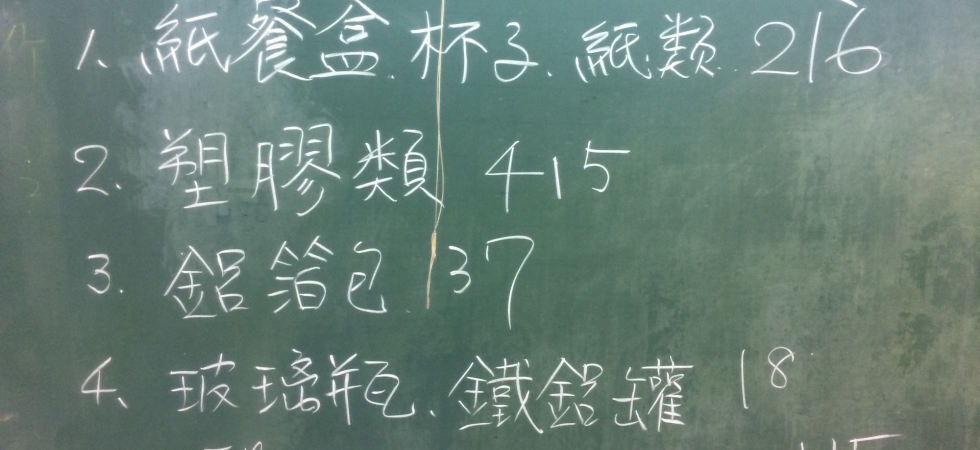 1. 紙餐盒.杯子.紙類 216
2. 塑膠類 415
3. 鋁箔包 37
4、玻璃瓶、鐵鋁罐 18